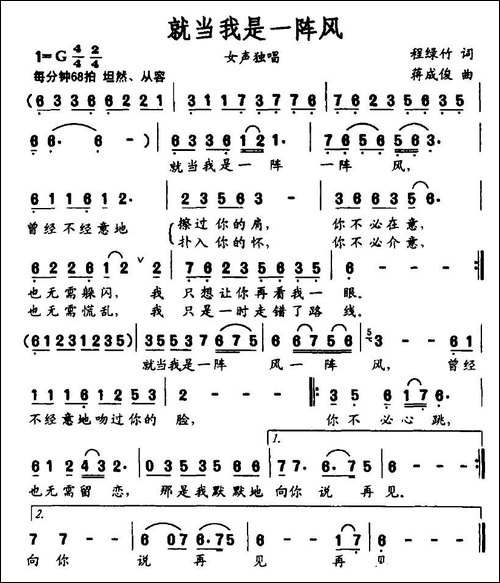 就当我是一阵风
1=G 4/4 2/4
女声独唱
程绿竹 词
每分钟68拍 坦然、从容
蒋成俊 曲
(6 3 3 6 6 6 5 6 3 1 1 7 3 7 7 6 7 2 3 5 2 5 6 3 5
6 6. 6 -) 6 3 3 6 6 1 2 1. 7 6 5 6 5 6 3.
就当我是一 阵 一阵 风，
6 1 1 6 1 2. 2 3 5 6 3 - 3 6 6 3 5 6.
曾经不经意地 擦过你的肩， 你不必在意，
扑入你的怀， 你不必介意，
6 2 2 6 1 2 2 7 6 2 3 5 6 3 5 6 -
也无需躲闪，我 只想让你再看我一 眼。
也无需慌乱，我 只是一时走错了路 线。
(6 1 2 3 1 2 3 5) 6 3 5 3 5 7 6 7 5 1 6 6 7 5 6 3 - - 6 1
就当我是一阵 风一阵 风，曾经
1 1 1 6 1 2 5 3 2 - - - 3 5 6 1 7 6.
不经意地吻过你的 脸， 你不 必心跳，
1.
6 1 2 4 3 2. 0 3 5 3 5 6 7 7. 6. 7 5 6 - - -
也无需留 恋， 那是我默默地 向你 说 再见。
2.
7 7 - - 6 0 7 6. 7 5 6 - - 1 7 6 - - -
向你 说 再 见 再 见。